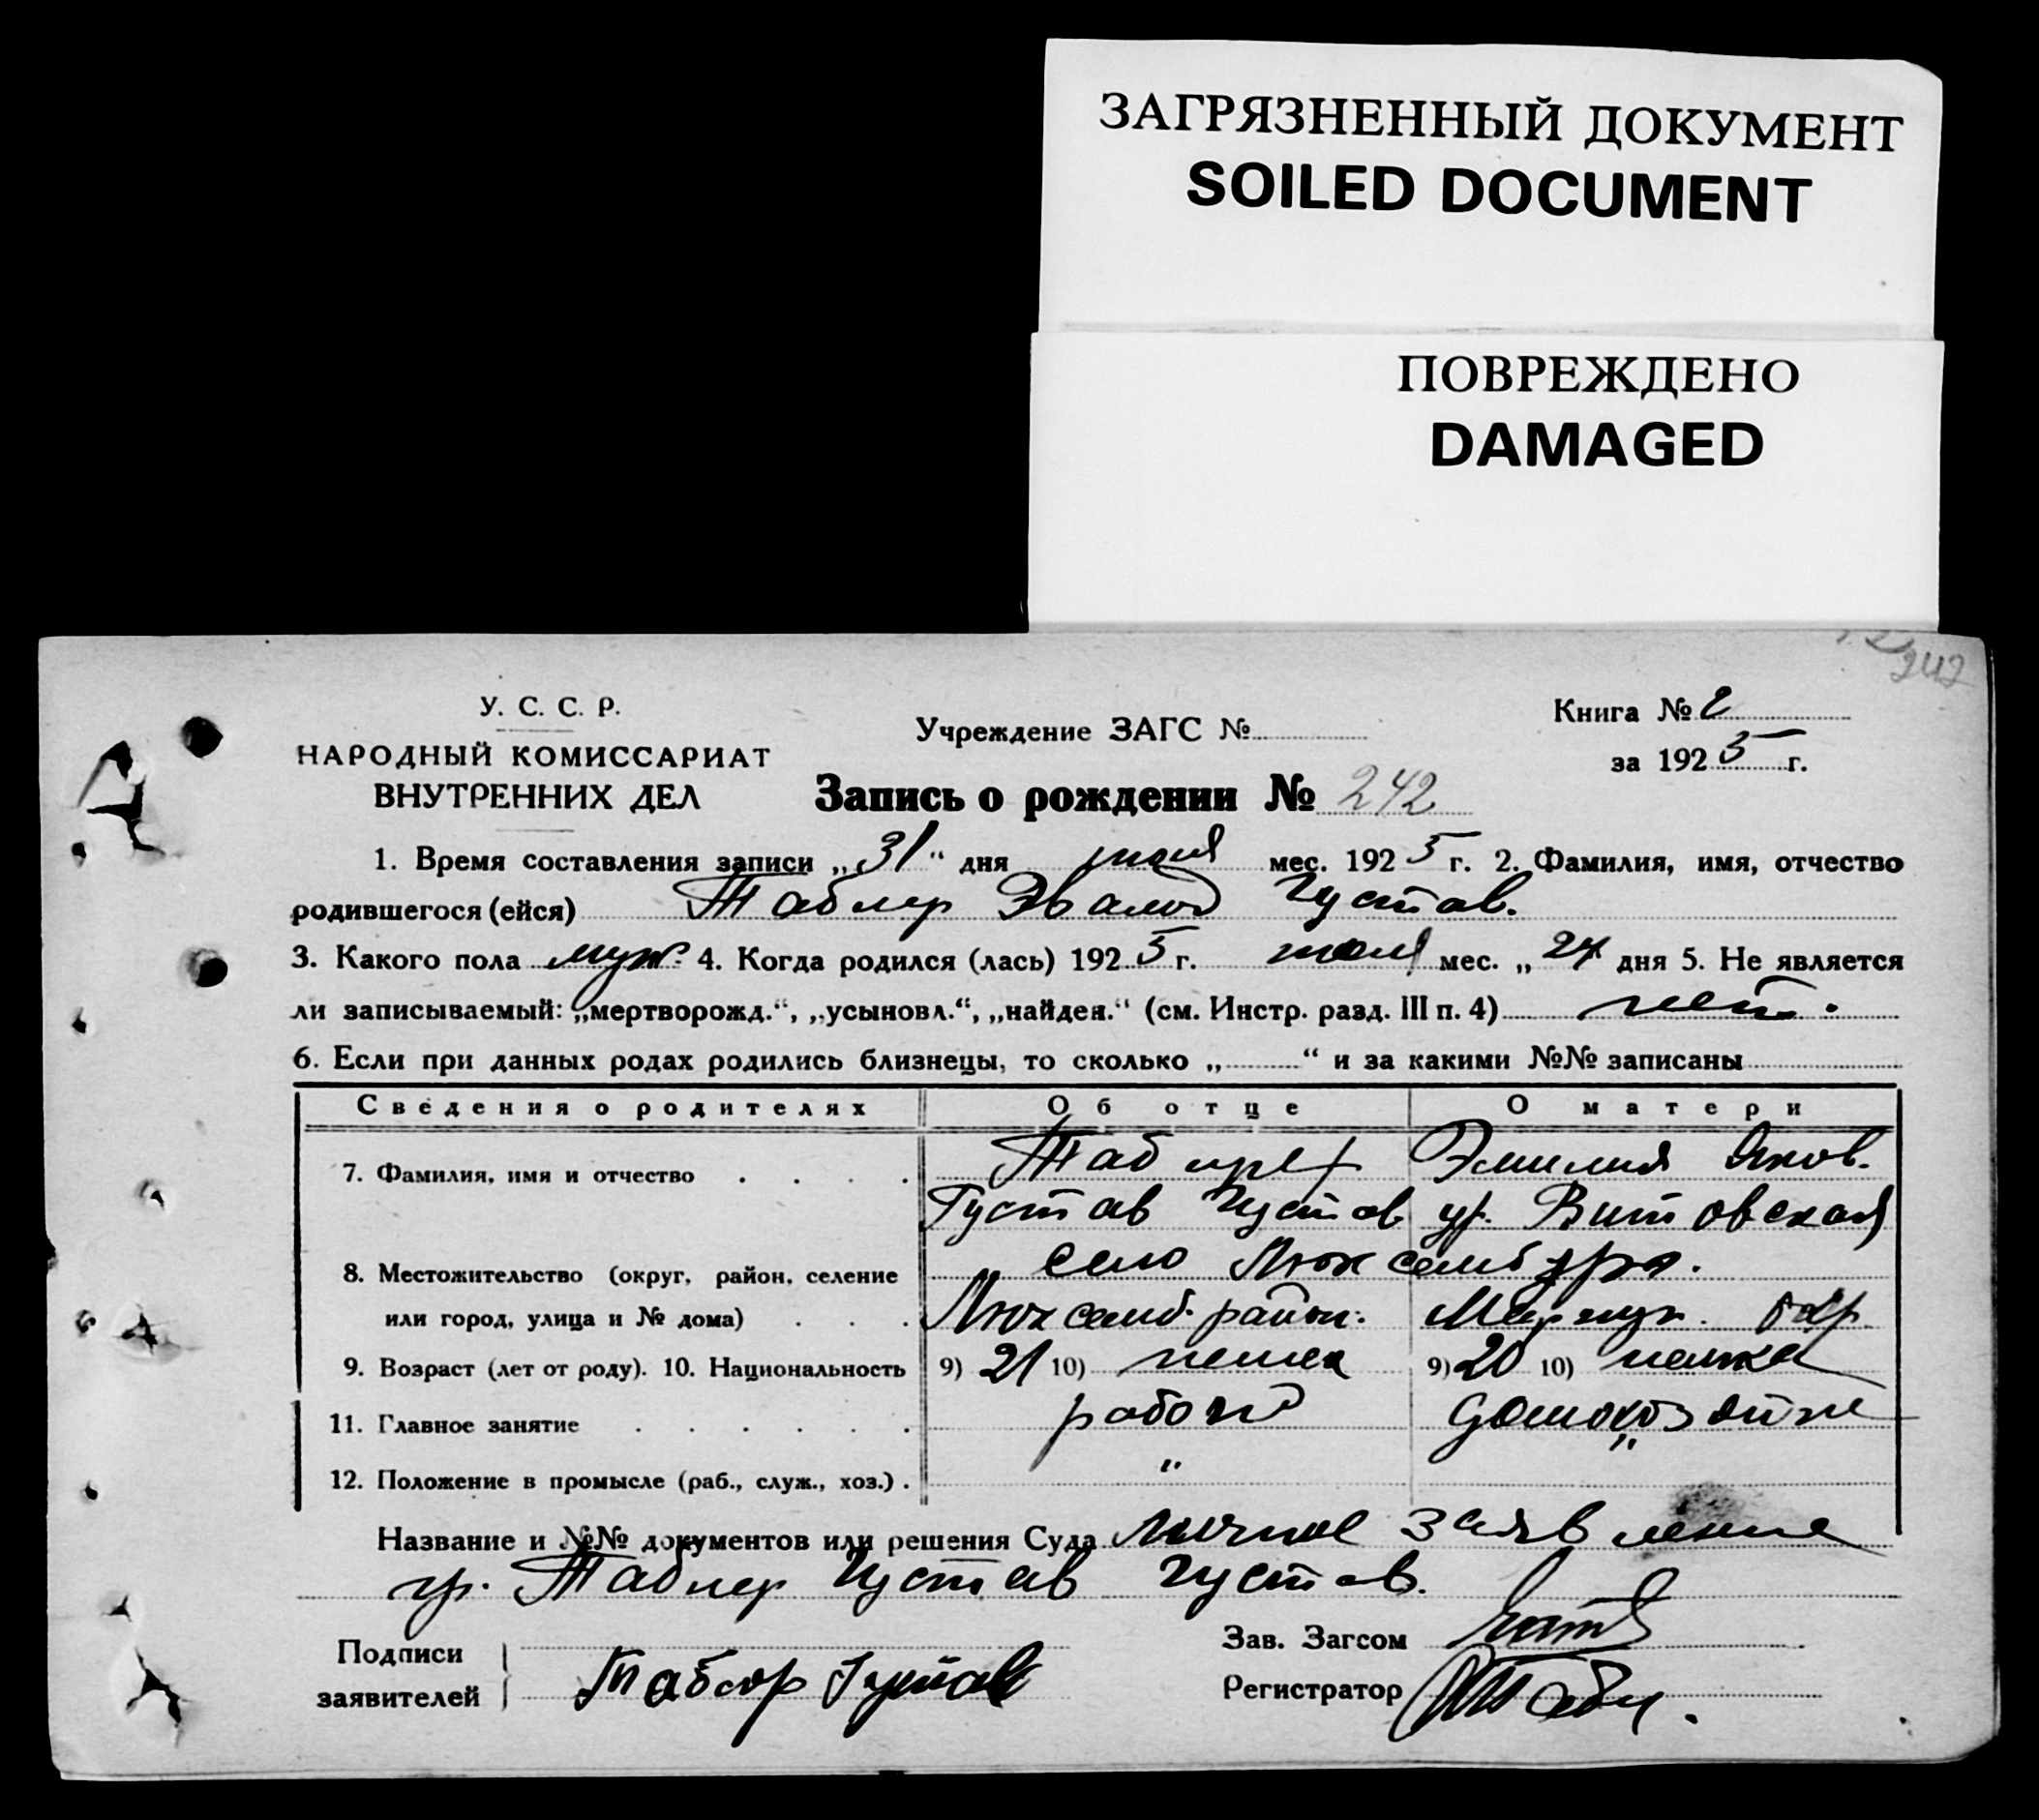 ЗАГРЯЗНЕННЫЙ ДОКУМЕНТ
SOILED DOCUMENT
ПОВРЕЖДЕНО
DAMAGED
242
У. С. С. Р.
НАРОДНЫЙ КОМИССАРИАТ
ВНУТРЕННИХ ДЕЛ
Учреждение ЗАГС №
Книга № 2
за 1925 г.
Запись о рождении № 242
1. Время составления записи „31“ дня июля мес. 1925 г. 2. Фамилия, имя, отчество
родившегося (ейся) Таблер Эвальд Густав.
3. Какого пола муж. 4. Когда родился (лась) 1925 г. июля мес. „24 дня 5. Не является
ли записываемый: „мертворожд.“, „усыновл.“, „найден.“ (см. Инстр. разд. III п. 4) нет.
6. Если при данных родах родились близнецы, то сколько „ “ и за какими №№ записаны
Сведения о родителях Об отце О матери
7. Фамилия, имя и отчество Таблер Эмилия Яков.
Густав Густав ур. Витовская
8. Местожительство (округ, район, селение село Люксембург.
или город, улица и № дома) Люксемб. район. Мариуп. окр.
9. Возраст (лет от роду). 10. Национальность 9) 21 10) немец 9) 20 10) немка
11. Главное занятие рабочий домохозяйка
12. Положение в промысле (раб., служ., хоз.) . " "
Название и №№ документов или решения Суда личное заявление
гр. Таблер Густав Густав.
Подписи
заявителей
Таблер Густав
Зав. Загсом
Регистратор